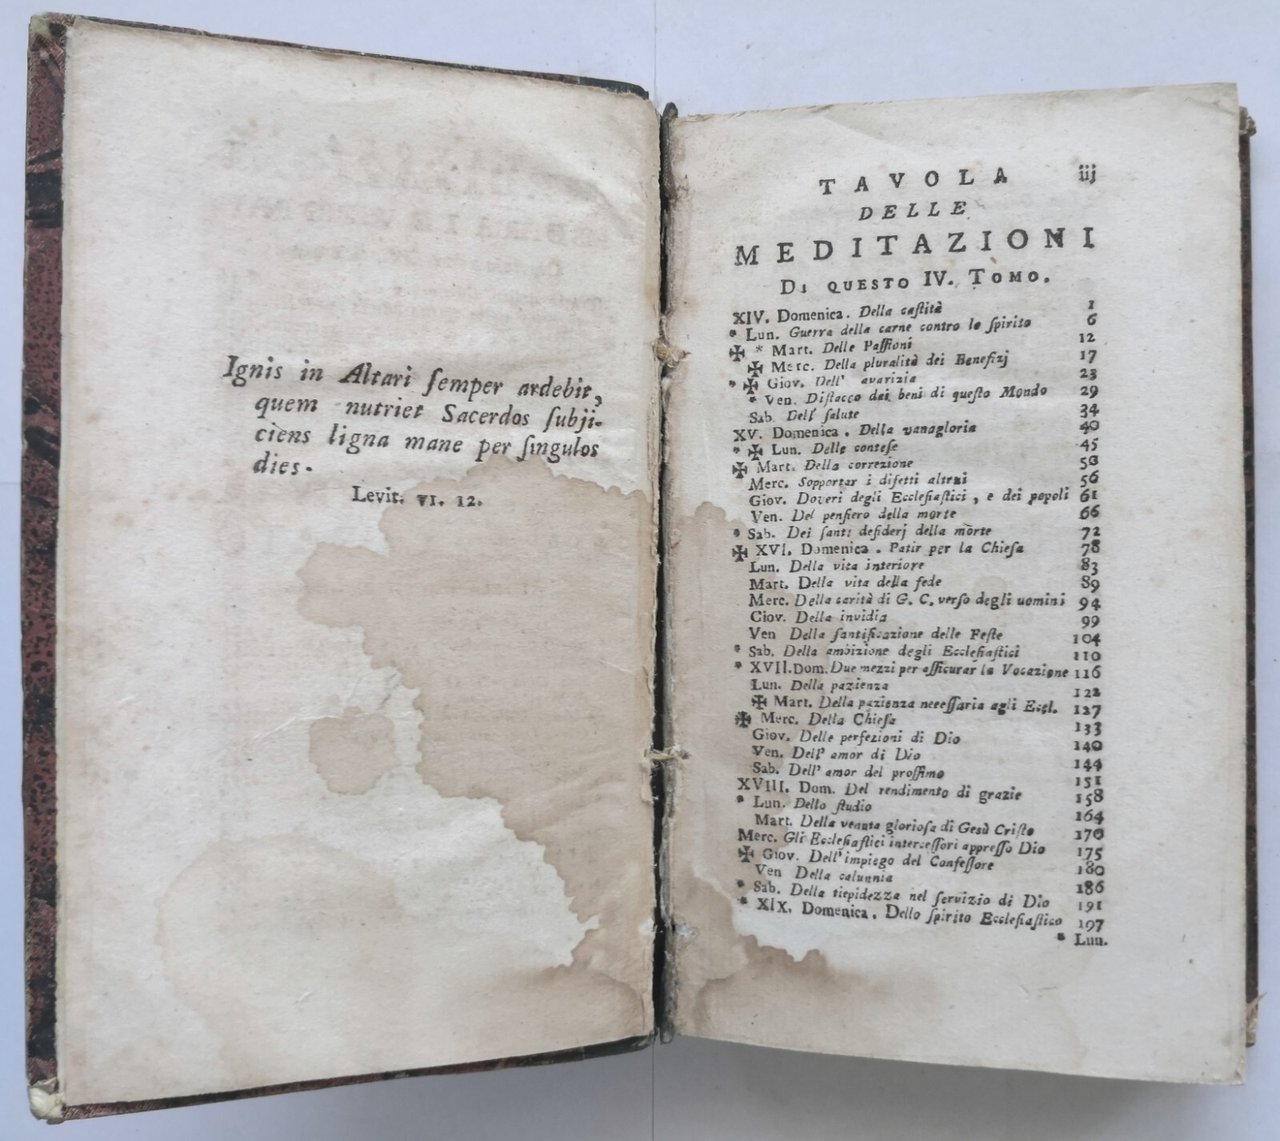 Ignis in Altari ſemper ardebit,
quem nutriet Sacerdos ſubji-
ciens ligna mane per ſingulos
dies.
Levit. VI. 12.
TAVOLA iij
DELLE
MEDITAZIONI
DI QUESTO IV. TOMO.
XIV. Domenica. Della caſtità 1
* Lun. Guerra della carne contro lo ſpirito 6
✠ * Mart. Delle Paſſioni 12
✠ Merc. Della pluralità dei Benefizj 17
* ✠ Giov. Dell' avarizia 23
* Ven. Diſtacco dai beni di queſto Mondo 29
Sab. Dell' ſalute 34
XV. Domenica. Della vanagloria 40
* ✠ Lun. Delle conteſe 45
✠ Mart. Della correzione 50
Merc. Sopportar i difetti altrui 56
Giov. Doveri degli Eccleſiaſtici, e dei popoli 61
Ven. Del penſiero della morte 66
* Sab. Dei ſanti deſiderj della morte 72
✠ XVI. Domenica. Patir per la Chieſa 78
Lun. Della vita interiore 83
Mart. Della vita della fede 89
Merc. Della carità di G. C. verſo degli uomini 94
Giov. Della invidia 99
Ven Della ſantificazione delle Feſte 104
* Sab. Della ambizione degli Eccleſiaſtici 110
* XVII. Dom. Due mezzi per aſſicurar la Vocazione 116
Lun. Della pazienza 122
✠ Mart. Della pazienza neceſſaria agli Eccl. 127
✠ Merc. Della Chieſa 133
Giov. Delle perfezioni di Dio 140
Ven. Dell' amor di Dio 144
Sab. Dell' amor del proſſimo 151
XVIII. Dom. Del rendimento di grazie 158
* Lun. Dello ſtudio 164
Mart. Della venuta glorioſa di Gesù Criſto 170
Merc. Gli Eccleſiaſtici interceſſori appreſſo Dio 175
✠ Giov. Dell' impiego del Confeſſore 180
Ven Della calunnia 186
* Sab. Della tiepidezza nel ſervizio di Dio 191
* XIX. Domenica. Dello ſpirito Eccleſiaſtico 197
* Lun.